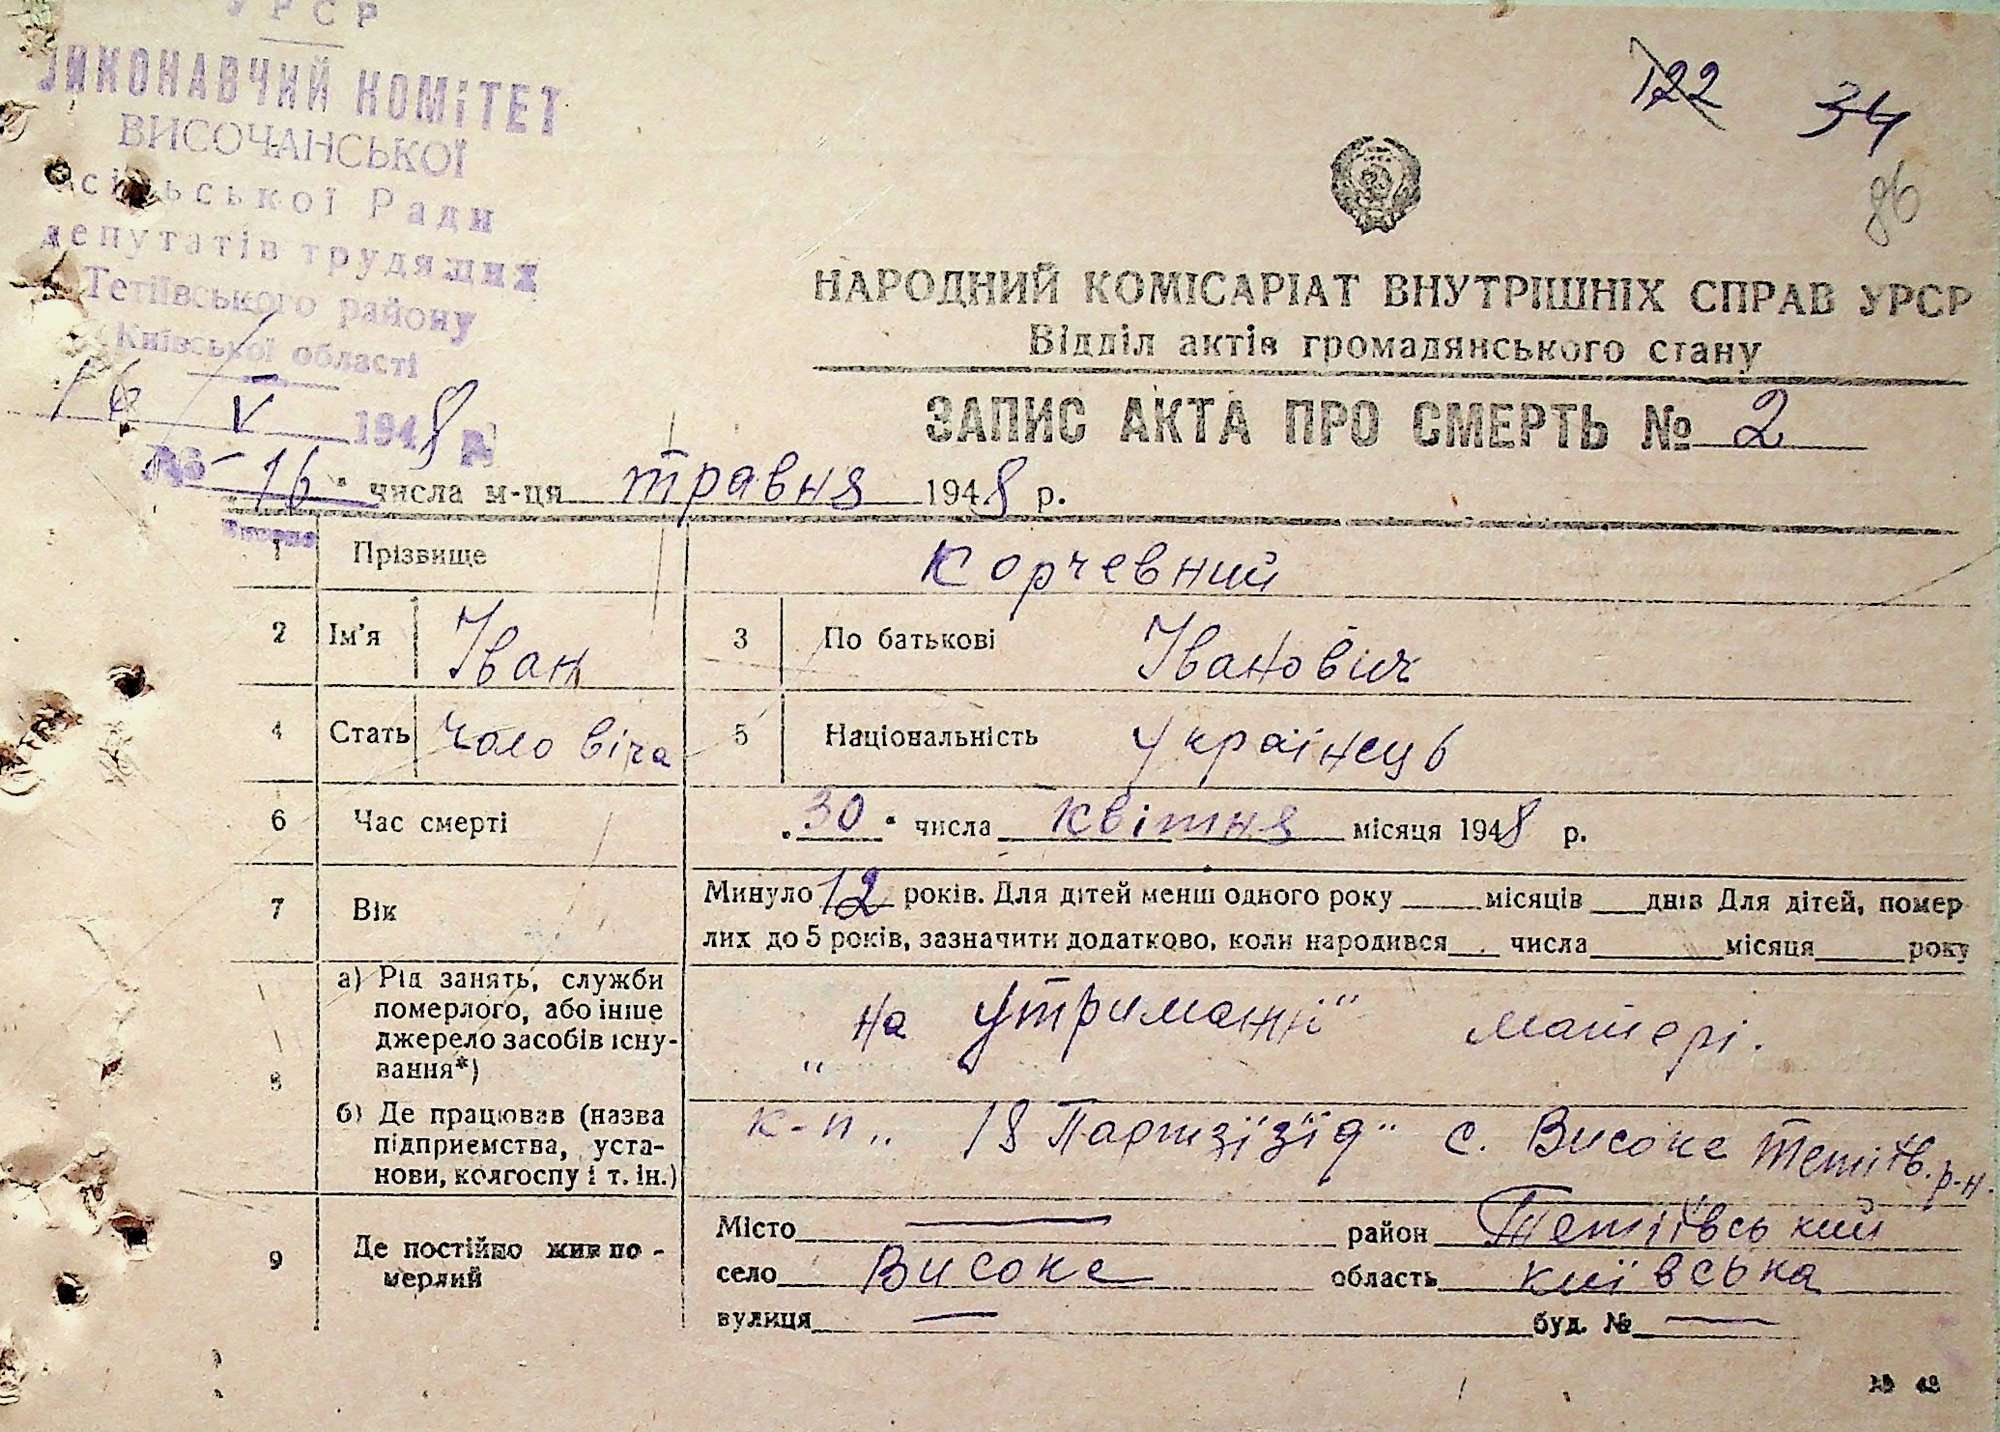 УРСР
ВИКОНАВЧИЙ КОМІТЕТ
ВИСОЧАНСЬКОЇ
сільської Ради
депутатів трудящих
Тетіївського району
Київської області
16 V 1948 р.
№
122 34
86
НАРОДНИЙ КОМІСАРІАТ ВНУТРІШНІХ СПРАВ УРСР
Відділ актів громадянського стану
ЗАПИС АКТА ПРО СМЕРТЬ № 2
16 " числа м-ця травня 1948 р.
1 Прізвище Корчевний
2 Ім'я Іван 3 По батькові Іванович
4 Стать чоловіча 5 Національність українець
6 Час смерті "30" числа квітня місяця 1948 р.
7 Вік Минуло 12 років. Для дітей менш одного року місяців днів Для дітей, помер
лих до 5 років, зазначити додатково, коли народився числа місяця року
8 а) Рід занять, служби
померлого, або інше
джерело засобів існу-
вання*)
„на утриманні" матері.
б) Де працював (назва
підприємства, уста-
нови, колгоспу і т. ін.)
к-п „18 Партзїзїд" с. Високе Тетіїв. р-н.
9 Де постійно жив по-
мерлий
Місто — район Тетіївський
село Високе область київська
вулиця — буд. № —